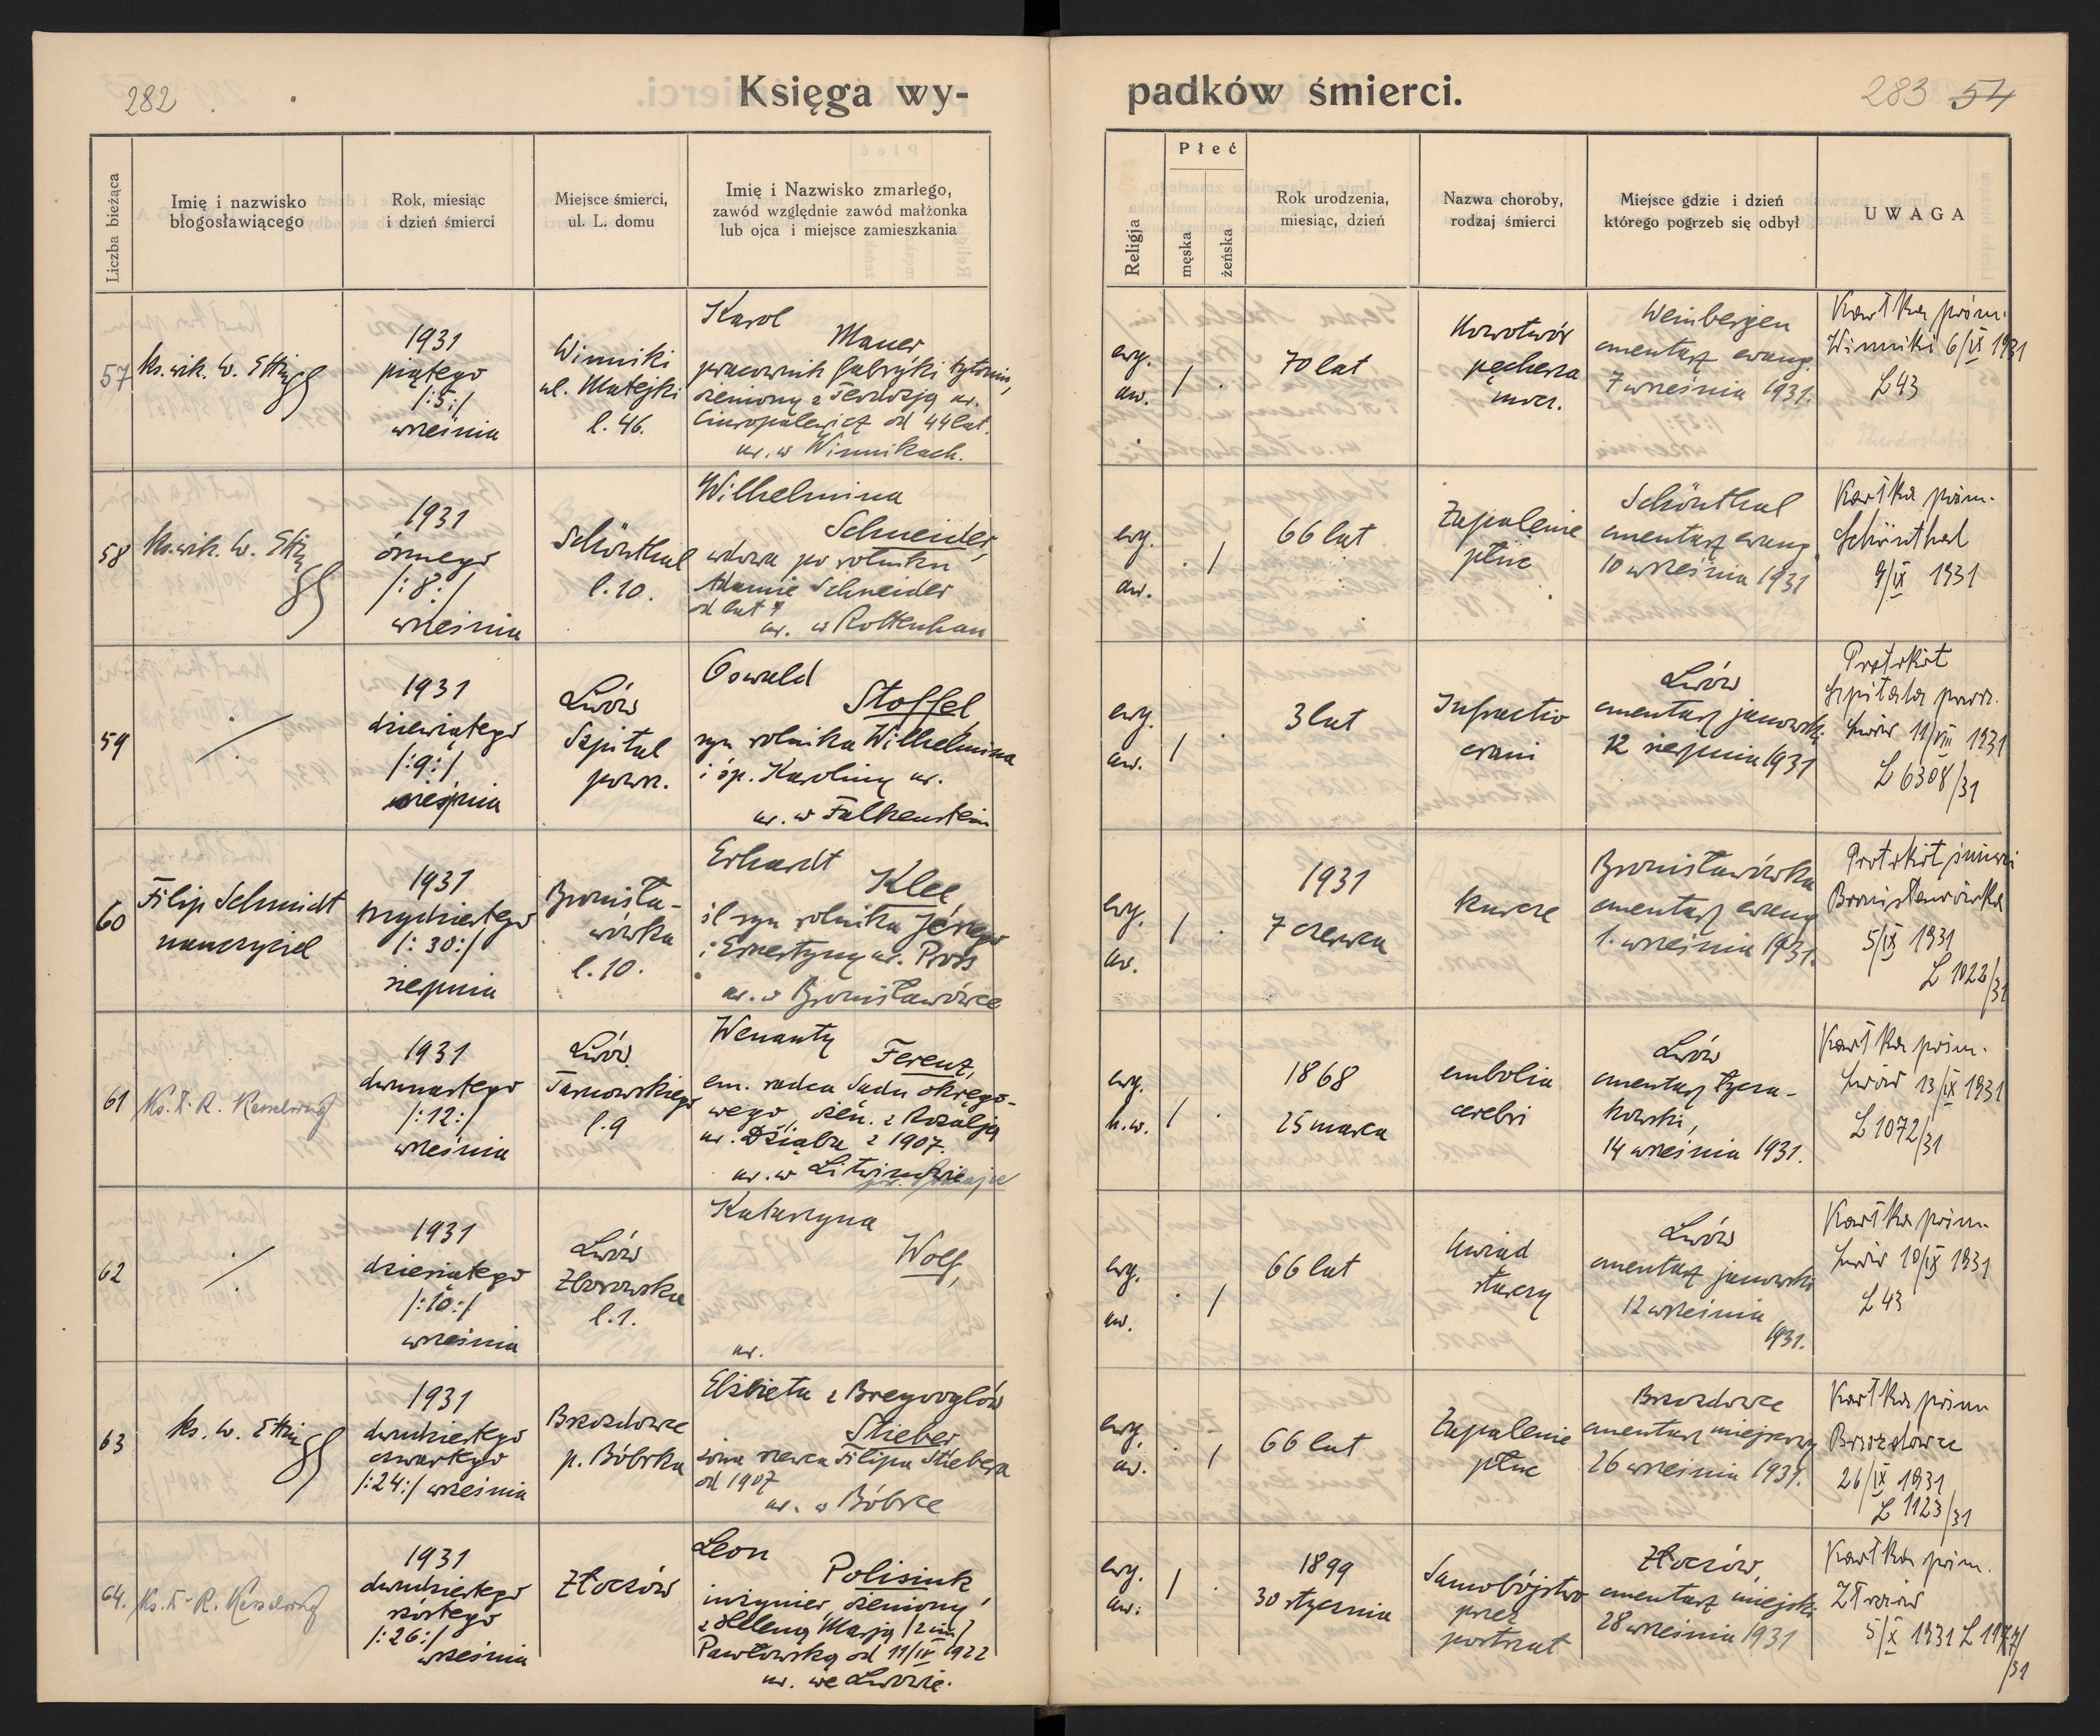 282
Księga wy-
padków śmierci.
283 54
Liczba bieżąca
Imię i nazwisko
błogosławiącego
Rok, miesiąc
i dzień śmierci
Miejsce śmierci,
ul. L. domu
Imię i Nazwisko zmarłego,
zawód względnie zawód małżonka
lub ojca i miejsce zamieszkania
Religja
Płeć
męska
żeńska
Rok urodzenia,
miesiąc, dzień
Nazwa choroby,
rodzaj śmierci
Miejsce gdzie i dzień
którego pogrzeb się odbył
UWAGA
57
ks. wik. W.
1931
piątego
/:5:/
września
Winniki
ul. Matejki
l. 46.
Karol
Mauer
pracownik fabryki tytoniu,
żeniony z Teodozją ur.
od 44 lat.
ur. w Winnikach.
ewg.
aw.
/ .
70 lat
Nowotwór
pęcherza
mocz.
Weinbergen
cmentarz ewang.
7 września 1931.
Kartka pośm.
Winniki 6/IX 1931
L 43
58
ks. wik. W.
1931
ósmego
/:8:/
września
Schönthal
l. 10.
Wilhelmina
Schneider,
wdowa po rolniku
Adamie Schneider
od lat
ur. w Rottenhan
ewg.
aw.
. /
66 lat
Zapalenie
płuc
Schönthal
cmentarz ewang.
10 września 1931
Kartka pośm.
Schönthal
9/IX 1931
59
./.
1931
dziewiątego
/:9:/
sierpnia
Lwów
Szpital
powsz.
Oswald
Stoffel,
syn rolnika Wilhelmina
i śp. Karoliny ur.
ur. w Falkenstein
ewg.
aw.
/ .
3 lat
Infractio
crani
Lwów
cmentarz janowski
12 sierpnia 1931
Protokół
Szpitala powsz.
Lwów 11/VIII 1931
L 6308/31
60
Filip Schmidt
nauczyciel
1931
trzydziestego
/:30:/
sierpnia
Bronisła-
wówka
l. 10.
Erhardt
Klee
śl syn rolnika Jerzego
i Ernestyny ur. Pross
ur. w Bronisławówce
ewg.
aw.
/ .
1931
7 czerwca
kurcze
Bronisławówka
cmentarz ewang
1. września 1931.
Protokół śmierci
Bronisławówka
5/IX 1931
L 1022/31
61
Ks. R. Kesselring
1931
dwunastego
/:12:/
września
Lwów
Tarnowskiego
l. 9
Wenanty
Ferenz,
em. radca Sądu okręgo-
wego, żen. z Rozalją
ur. z 1907.
ur. w
ewg.
h.w.
/ .
1868
25 marca
embolia
cerebri
Lwów
cmentarz łycza-
kowski,
14 września 1931.
Kartka pośm.
Lwów 13/IX 1931
L 1072/31
62
./.
1931
dziesiątego
/:10:/
września
Lwów
Zborowska
l. 1.
Katarzyna
Wolf,
ur.
ewg.
aw.
. /
66 lat
Uwiąd
starczy
Lwów
cmentarz janowski
12 września
1931.
Kartka pośm.
Lwów 10/IX 1931
L 43
63
ks. W.
1931
dwudziestego
czwartego
/:24:/ września
Brzozdowce
p. Bóbrka
Elżbieta z
Stieber
żona szewca Filipa Stiebera
od 1907
ur. w Bóbrce
ewg.
aw.
. /
66 lat
Zapalenie
płuc
Brzozdowce
cmentarz miejscowy
26 września 1931.
Kartka pośm
Brzozdowce
26/IX 1931
L 1123/31
64.
Ks. R. Kesselring
1931
dwudziestego
szóstego
/:26:/
września
Złoczów
Leon
Polisiuk
inżynier, żeniony
z Heleną Marją /2im/
Pawłowską od 11/IV 1922
ur. we Lwowie.
ewg.
aw.
/ .
1899
30 stycznia
Samobójstwo
przez
postrzał
Złoczów,
cmentarz miejski
28 września 1931
Kartka pośm.
Złoczów
5/X 1931